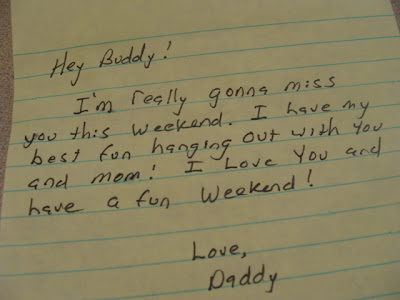 Hey Buddy!
I'm really gonna miss
you this weekend. I have my
best fun hanging out with you
and mom! I Love You and
have a fun Weekend!
Love,
Daddy